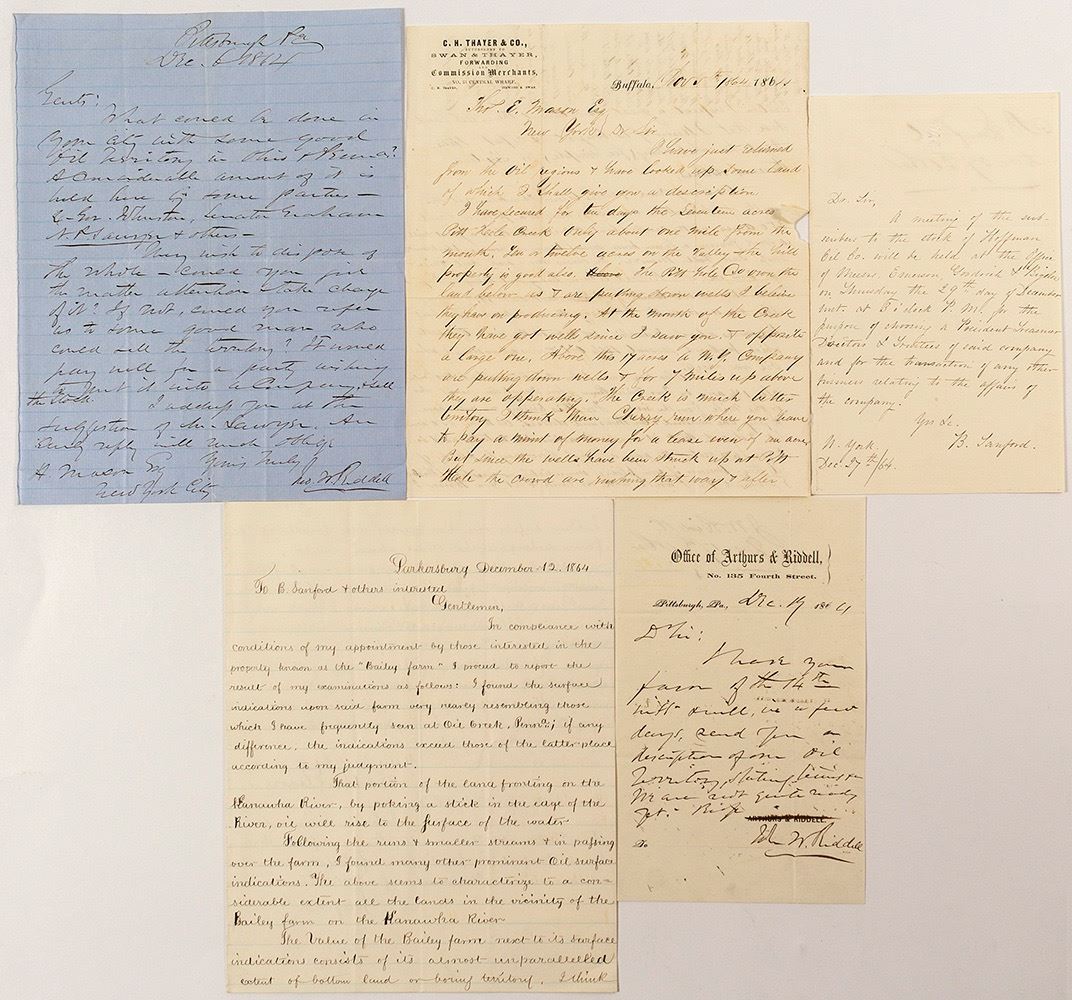 Pittsburgh Pa
Dec. 6 1864
Gents:
What could be done in
your city with some good
Oil Territory in Ohio & Penna?
A considerable amount of it is
held here by some parties—
Ex Gov. Johnston, Senator Graham
N. P. Sawyer & others—
They wish to dispose of
the whole— could you give
the matter attention & take charge
of it? If not, could you refer
us to some good man who
could sell the territory? It would
pay well for a party
to put it into a Company & sell
the stock.
I address you at the
suggestion of Mr. Sawyer. An
early reply will much oblige
Yours truly
Jno. W. Riddell
H Mason Esq
New York City
C. H. THAYER & CO.,
SUCCESSORS TO
SWAN & THAYER,
FORWARDING
AND
Commission Merchants,
NO. CENTRAL WHARF.
C. H. THAYER.
Buffalo, Nov 1864 1864
Thos. E. Mason Esq
New York, Dr Sir
I have just returned
from the Oil regions & have looked up some land
of which I shall give you a description
I have secured for ten days the Seventeen acres
Pitt Hole Creek only about one mile from the
mouth. twelve acres on the Valley the hill
property is good also. The Pitt Hole Co own the
land below us & are putting down wells I believe
they have on producing. At the mouth of the Creek
they have got wells since I saw you & opposite
a large one, Above this 17 acres a N.Y. Company
are putting down wells & for 7 miles up above
they are opperating. The Creek is much better
territory I think than Cherry run where you have
to pay a mint of money for a lease even of an acre
But since the wells have been struck up at Pitt
Hole the crowd are rushing that way & after
Dr. Sir,
A meeting of the sub-
scribers to the stock of Hoffman
Oil Co. will be held at the office
of Messrs. Goodrich &
on Thursday the 29th day of December
inst. at o'clock P. M. for the
purpose of choosing a President Treasurer
Directors & Trustees of said company
and for the transaction of any other
business relating to the affairs of
the company.
Yrs &c.
B. Sanford.
N. York
Dec. 27th /64.
Parkersburg December 12. 1864
To B. Sanford & others interested
Gentlemen,
In compliance with
conditions of my appointment by those interested in the
property known as the "Bailey farm" I proceed to report the
result of my examinations as follows: I found the surface
indications upon said farm very nearly resembling those
which I have frequently seen at Oil Creek, Penna; if any
difference, the indications exceed those of the latter place
according to my judgment.
That portion of the land fronting on the
Kanawha River, by poking a stick in the edge of the
River, oil will rise to the surface of the water
Following the runs & smaller streams & in passing
over the farm, I found many other prominent Oil surface
indications. The above seems to characterize to a con-
siderable extent all the lands in the vicinity of the
Bailey farm on the Kanawha River
The Value of the Bailey farm next to its surface
indications consists of its almost unparallelled
extent of bottom land or boring territory. I think
Office of Arthurs & Riddell,
No. 135 Fourth Street.
Pittsburgh, Pa., Dec. 19 1864
D Sir:
I have your
favor of the 14th
& will, in a few
days, send you a
description of our Oil
Territory, stating terms &c
We are not quite ready
yet. Resp
ARTHURS & RIDDELL.
Jno W. Riddell